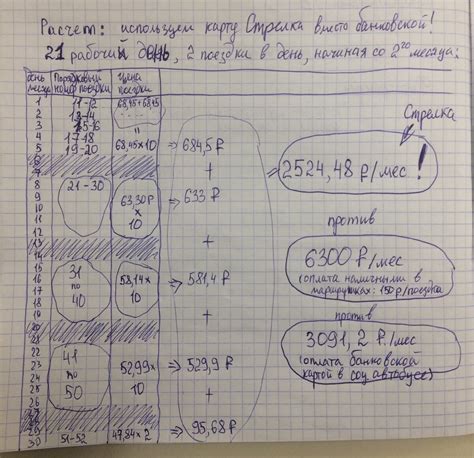 Расчет: используем карту Стрелка вместо банковской!
21 рабочий день, 2 поездки в день, начиная со 2го месяца:
день месяца Порядковый номер поездки Цена поездки
1 11-12 68,45+68,45
2 13-14
3 15-16 =
4 17-18 68,45x10 ⇒ 684,5 ₽
5 19-20
6 +
7
8 21-30 63,30₽ x 10 ⇒ 633 ₽
9
10
11
12 +
13
14
15 31 по 40 58,14 x 10 ⇒ 581,4 ₽
16
17
18
19 +
20
21
22 41 по 50 52,99 x 10 ⇒ 529,9 ₽
23
24
25
26 +
27
28
29 51-52 47,84 x 2 ⇒ 95,68 ₽
30
Стрелка
2524,48 ₽/мес !
против
6300 ₽/мес
(оплата наличными в
маршрутках: 150 р/поездка)
против
3091,2 ₽/мес
(оплата банковской
картой в соц автобусе)